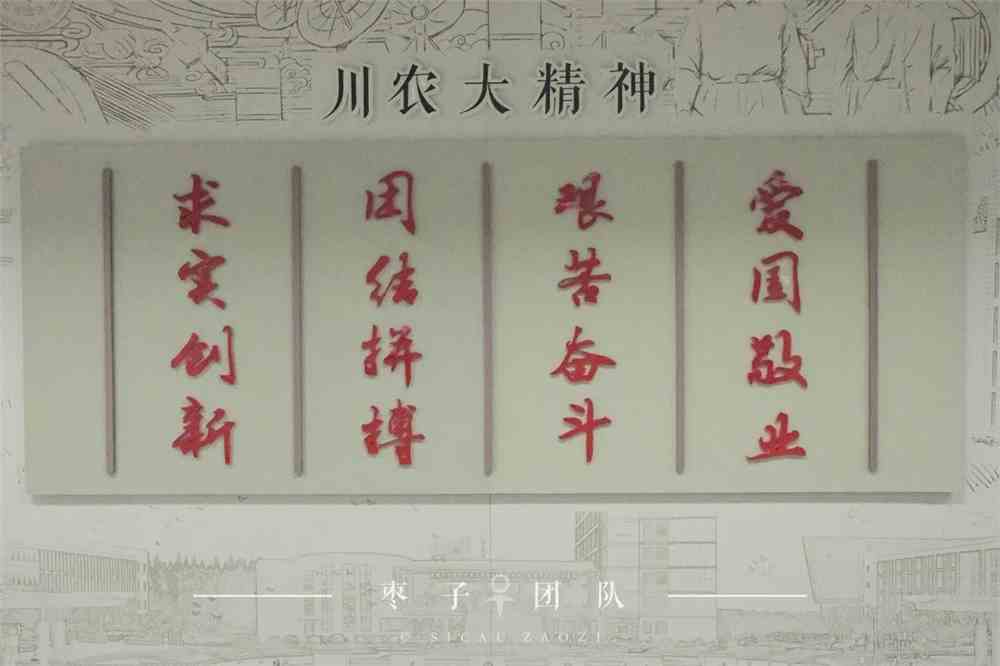 川农大精神
爱国敬业
艰苦奋斗
团结拼搏
求实创新
枣子团队
C SICAU ZAOZI